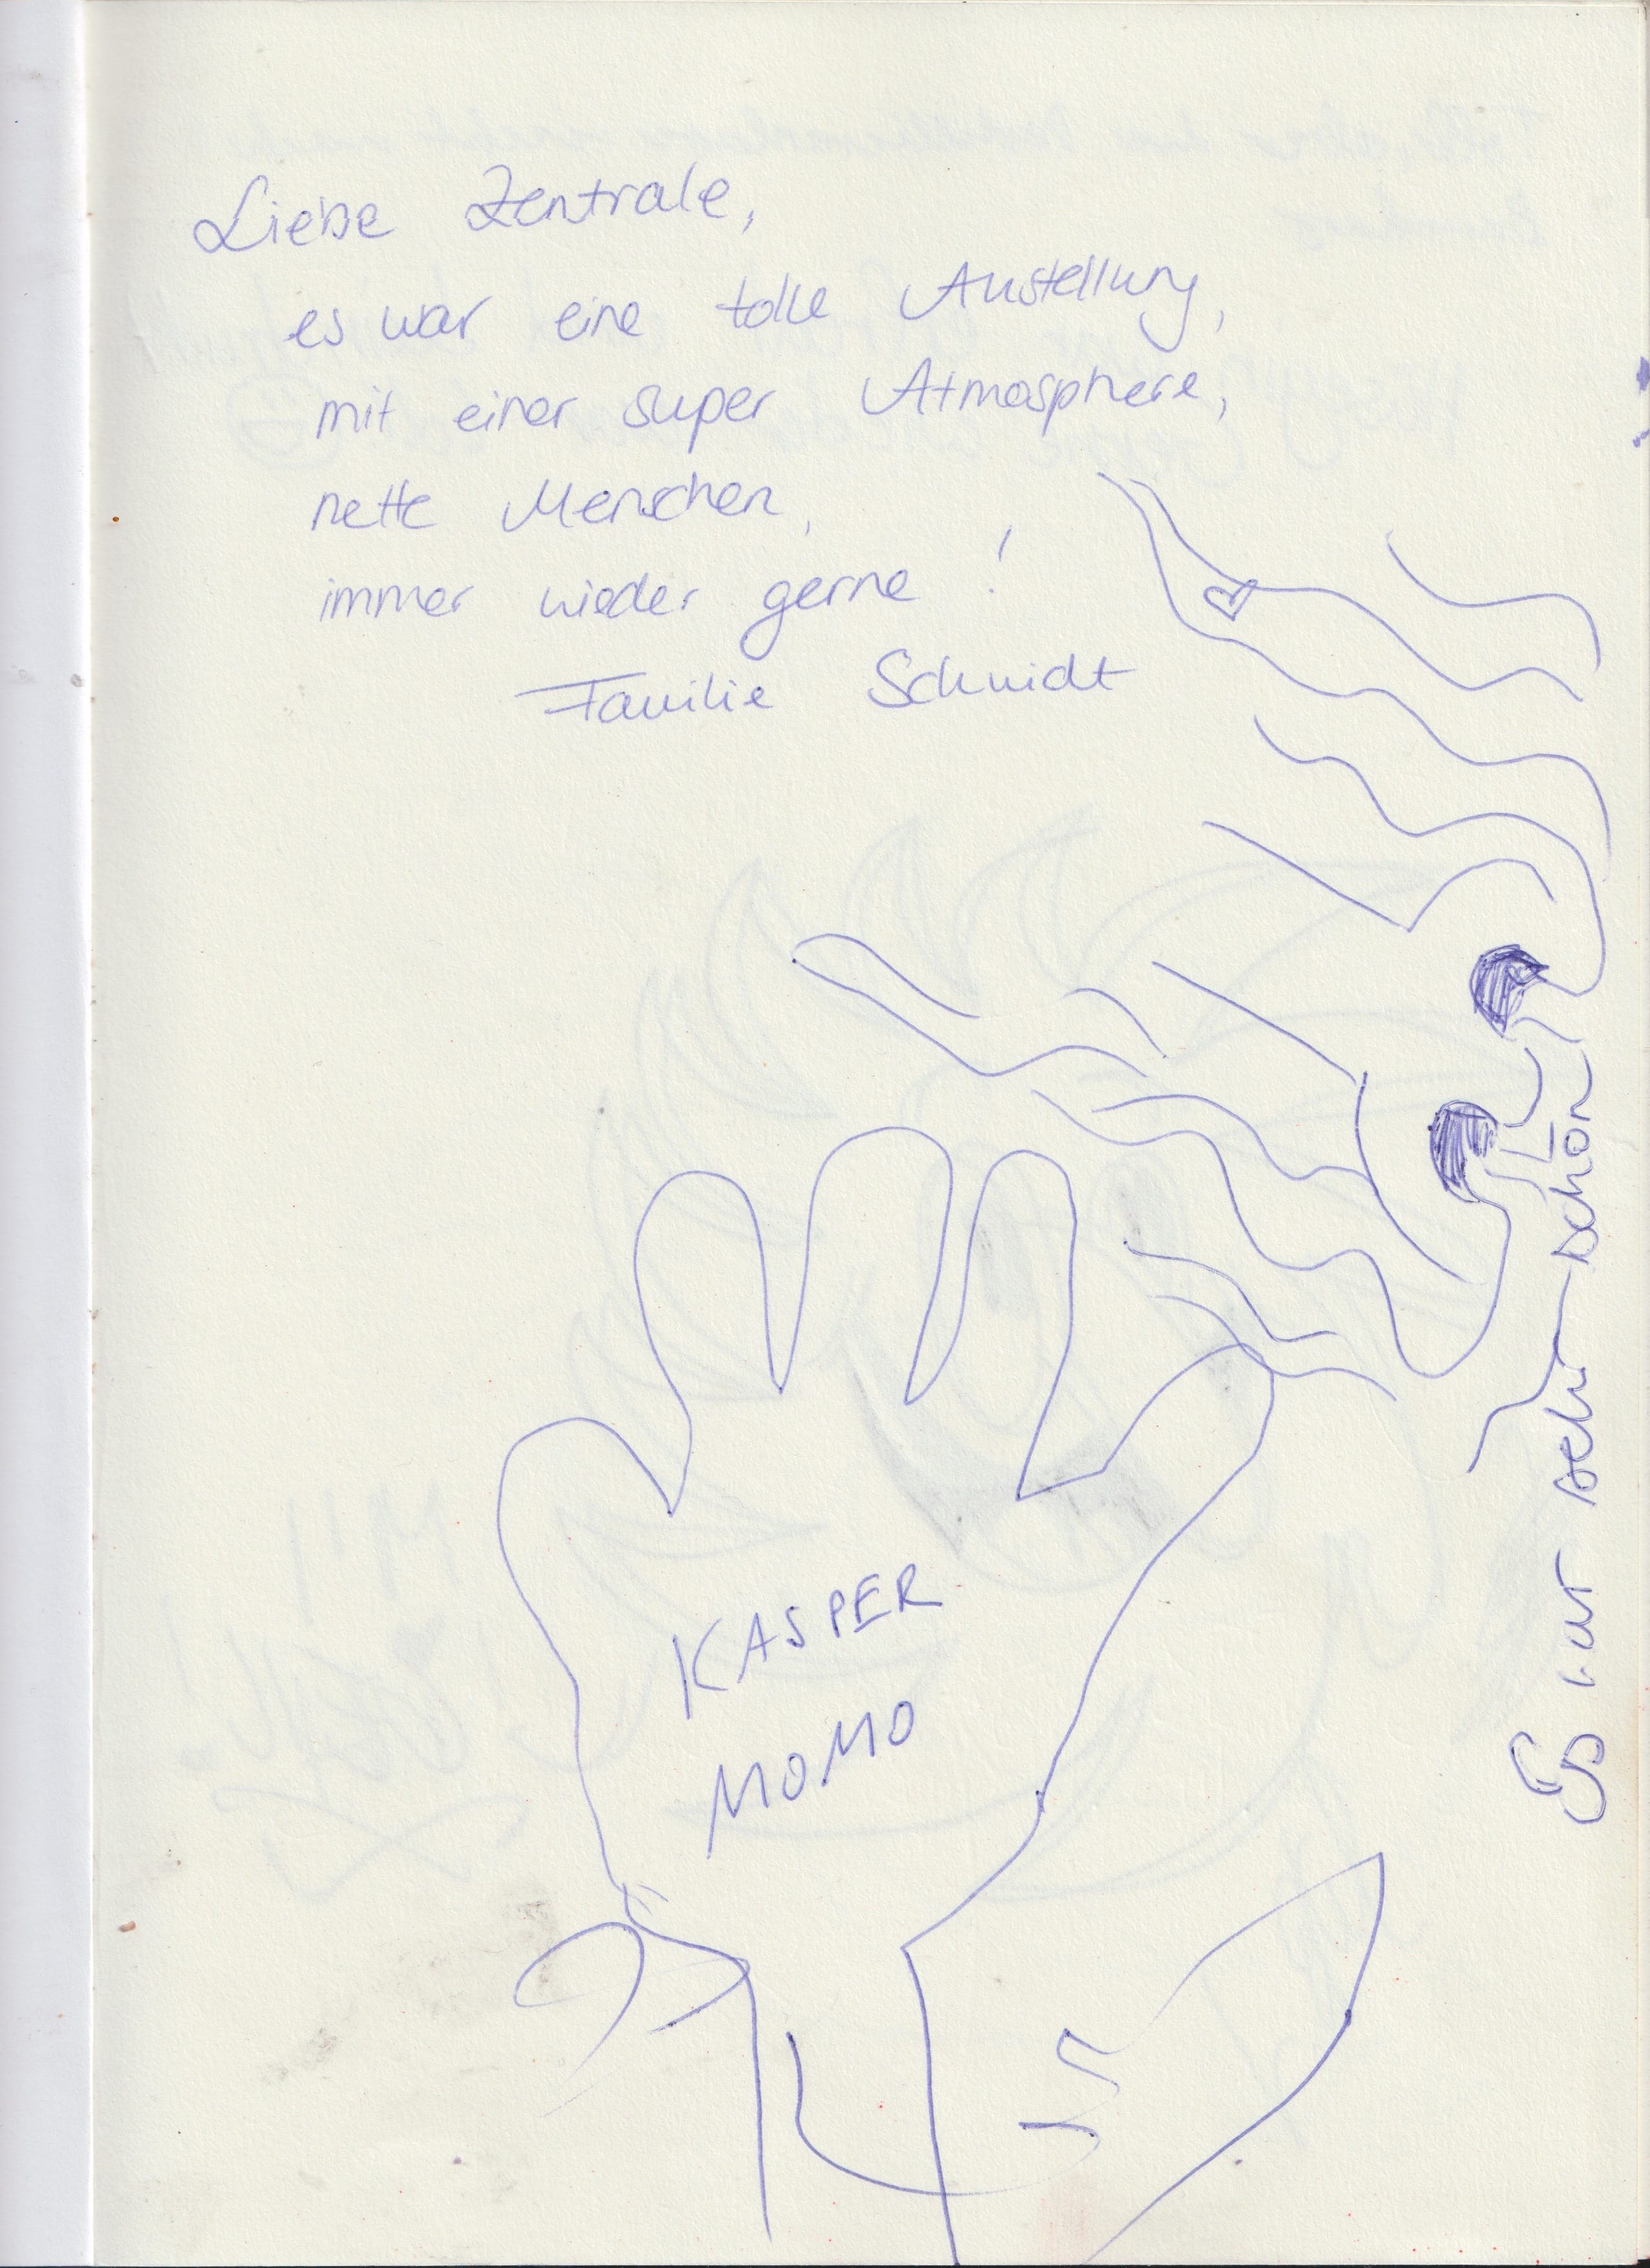 Liebe Zentrale,
es war eine tolle Austellung,
mit einer super Atmosphere,
nette Menschen,
immer wieder gerne!
Familie Schmidt
KASPER
MOMO
Es war sehr schön